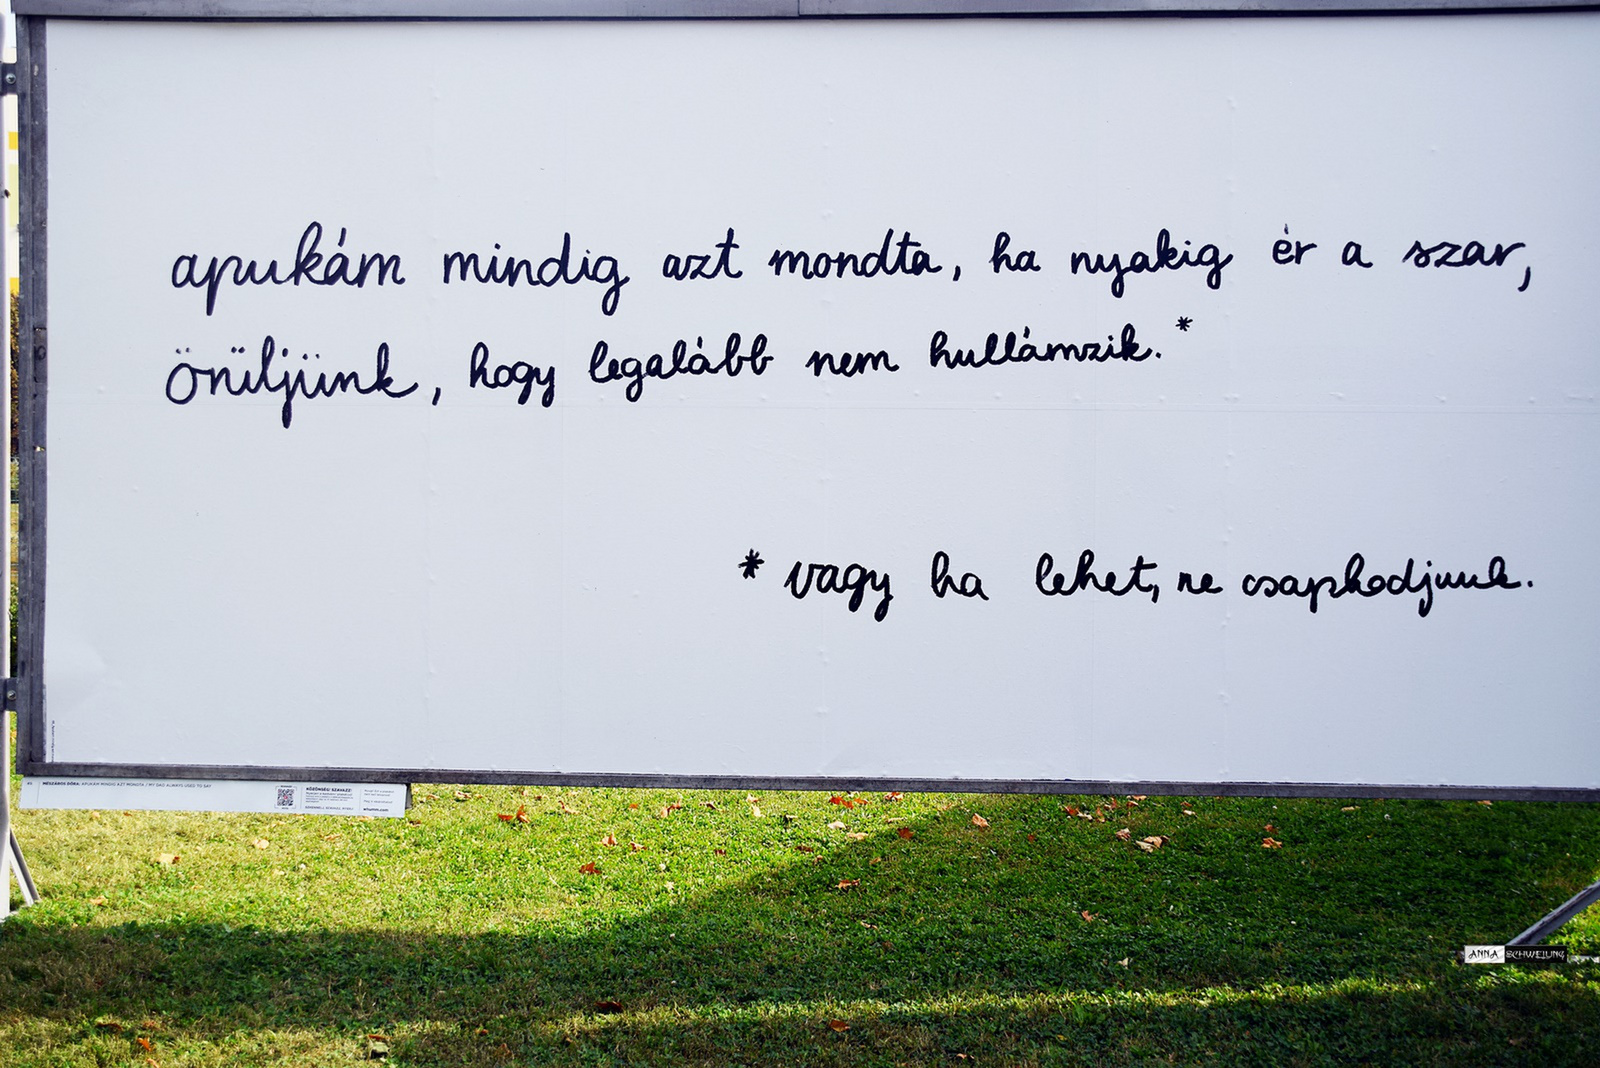 apukám mindig azt mondta, ha nyakig ér a szar,
örüljünk, hogy legalább nem hullámzik.*
* vagy ha lehet, ne csapkodjunk.
MÉSZÁROS DÓRA: APUKÁM MINDIG AZT MONDTA / MY DAD ALWAYS USED TO SAY
KÖZÖNSÉGI SZAVAZÁS!
ANNA SCHWELUNG